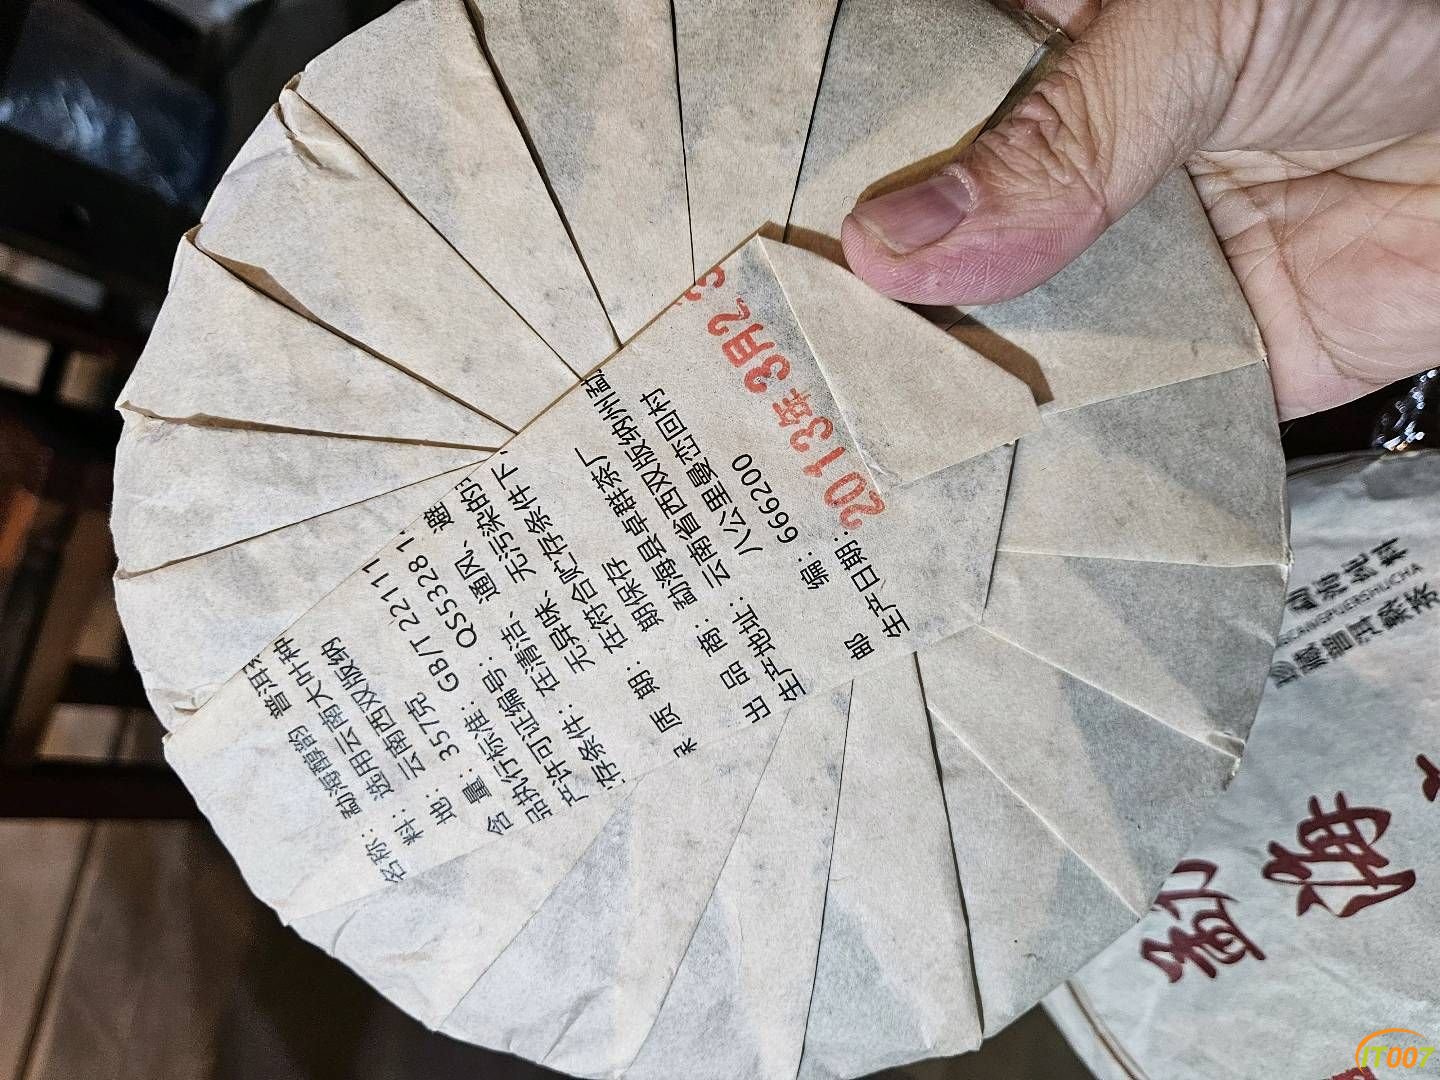 名称: 勐海醇韵 普洱
料: 选用云南大叶种
地: 云南西双版纳
含 量: 357克
品执行标准: GB/T 22111
产许可证编号: QS53281
存条件: 在清洁、通风、避
无异味、无污染的
在符合贮存条件下、
质 期: 期保存
出 品 商: 勐海县卓群茶厂
生产地址: 云南省西双版纳州勐
八公里曼恋回村
邮 编: 666200
生产日期: 2013年3月23
珍藏普洱熟茶
勐海
IT007